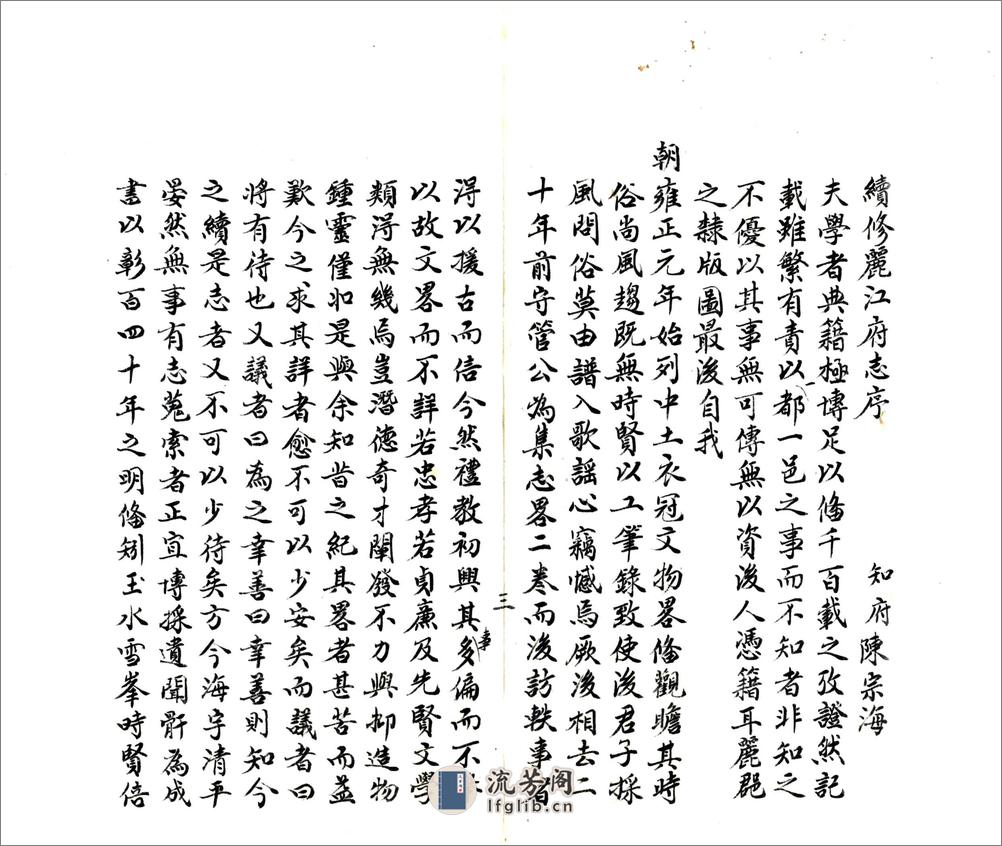 續修麗江府志序　知府陳宗海
夫學者典籍極博足以俻千百載之攷證然記
載雖繁有責以一都一邑之事而不知者非知之
不優以其事無可傳無以資後人憑籍耳麗郡
之隸版圖最後自我
朝雍正元年始列中土衣冠文物畧俻觀瞻其時
俗尚風趨既無時賢以工筆錄致使後君子採
風問俗莫由譜入歌謡心竊憾焉厥後相去二
十年前守管公為集志畧二卷而後訪軼事者
三
得以援古而信今然禮教初興其事多偏而不
以故文畧而不詳若忠孝若貞廉及先賢文學
類得無幾焉豈潛德奇才闡發不力與抑造物
鍾靈僅如是與余知昔之紀其畧者甚苦而益
歎今之求其詳者愈不可以少安矣而議者曰
將有待也又議者曰為之幸善曰幸善則知今
之續是志者又不可以少待矣方今海宇清平
晏然無事有志蒐索者正宜博採遺聞骿為成
書以彰百四十年之明俻矧玉水雪峯時賢倍
流芳阁
lfglib.cn